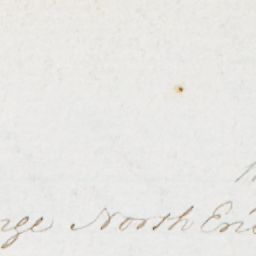 nge North Eri